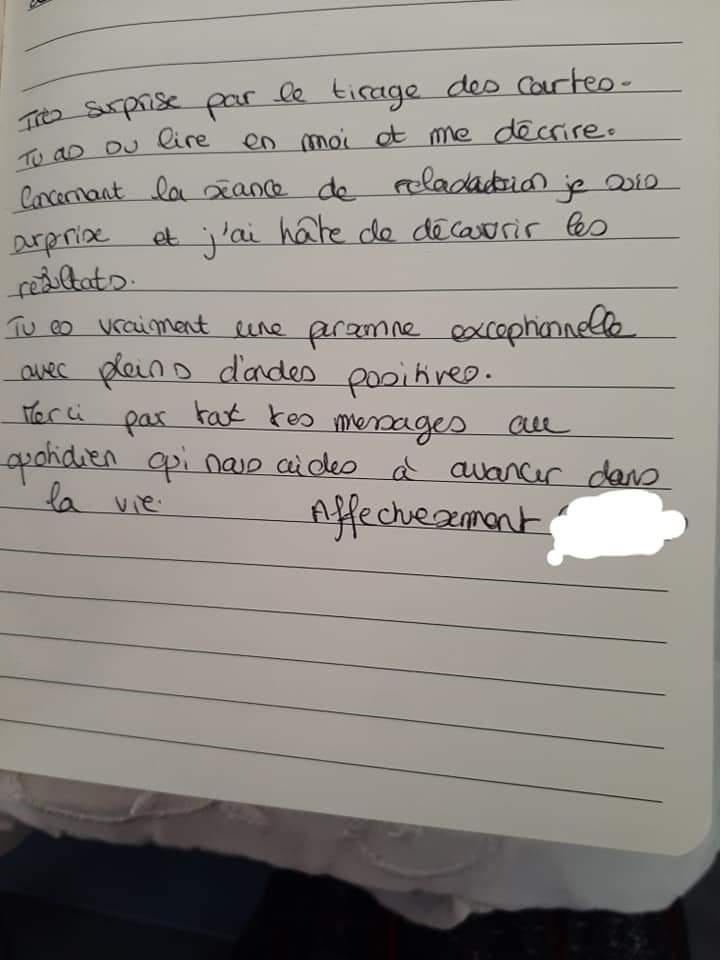 Très surprise par le tirage des cartes.
Tu as su lire en moi et me décrire.
Concernant la séance de je suis
surprise et j'ai hâte de découvrir les
résultats.
Tu es vraiment une personne exceptionnelle
avec pleins d'ondes positives.
Merci par tout tes messages au
quotidien qui nous aides à avancer dans
la vie. Affectueusement